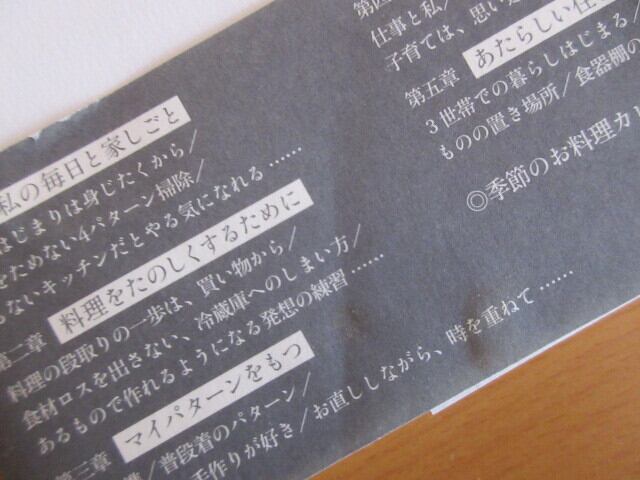 私の毎日と家しごと
はじまりは身じたくから/
をためない4パターン掃除/
らないキッチンだとやる気になれる……
第二章 料理をたのしくするために
料理の段取りの一歩は、買い物から/
食材ロスを出さない、冷蔵庫へのしまい方/
あるもので作れるようになる発想の練習……
第三章 マイパターンをもつ
/普段着のパターン/
手作りが好き/お直ししながら、時を重ねて……
第四
仕事と私/
子育ては、思い
第五章 あたらしい住
3世帯での暮らしはじまる/
ものの置き場所/食器棚の
◎季節のお料理カレ